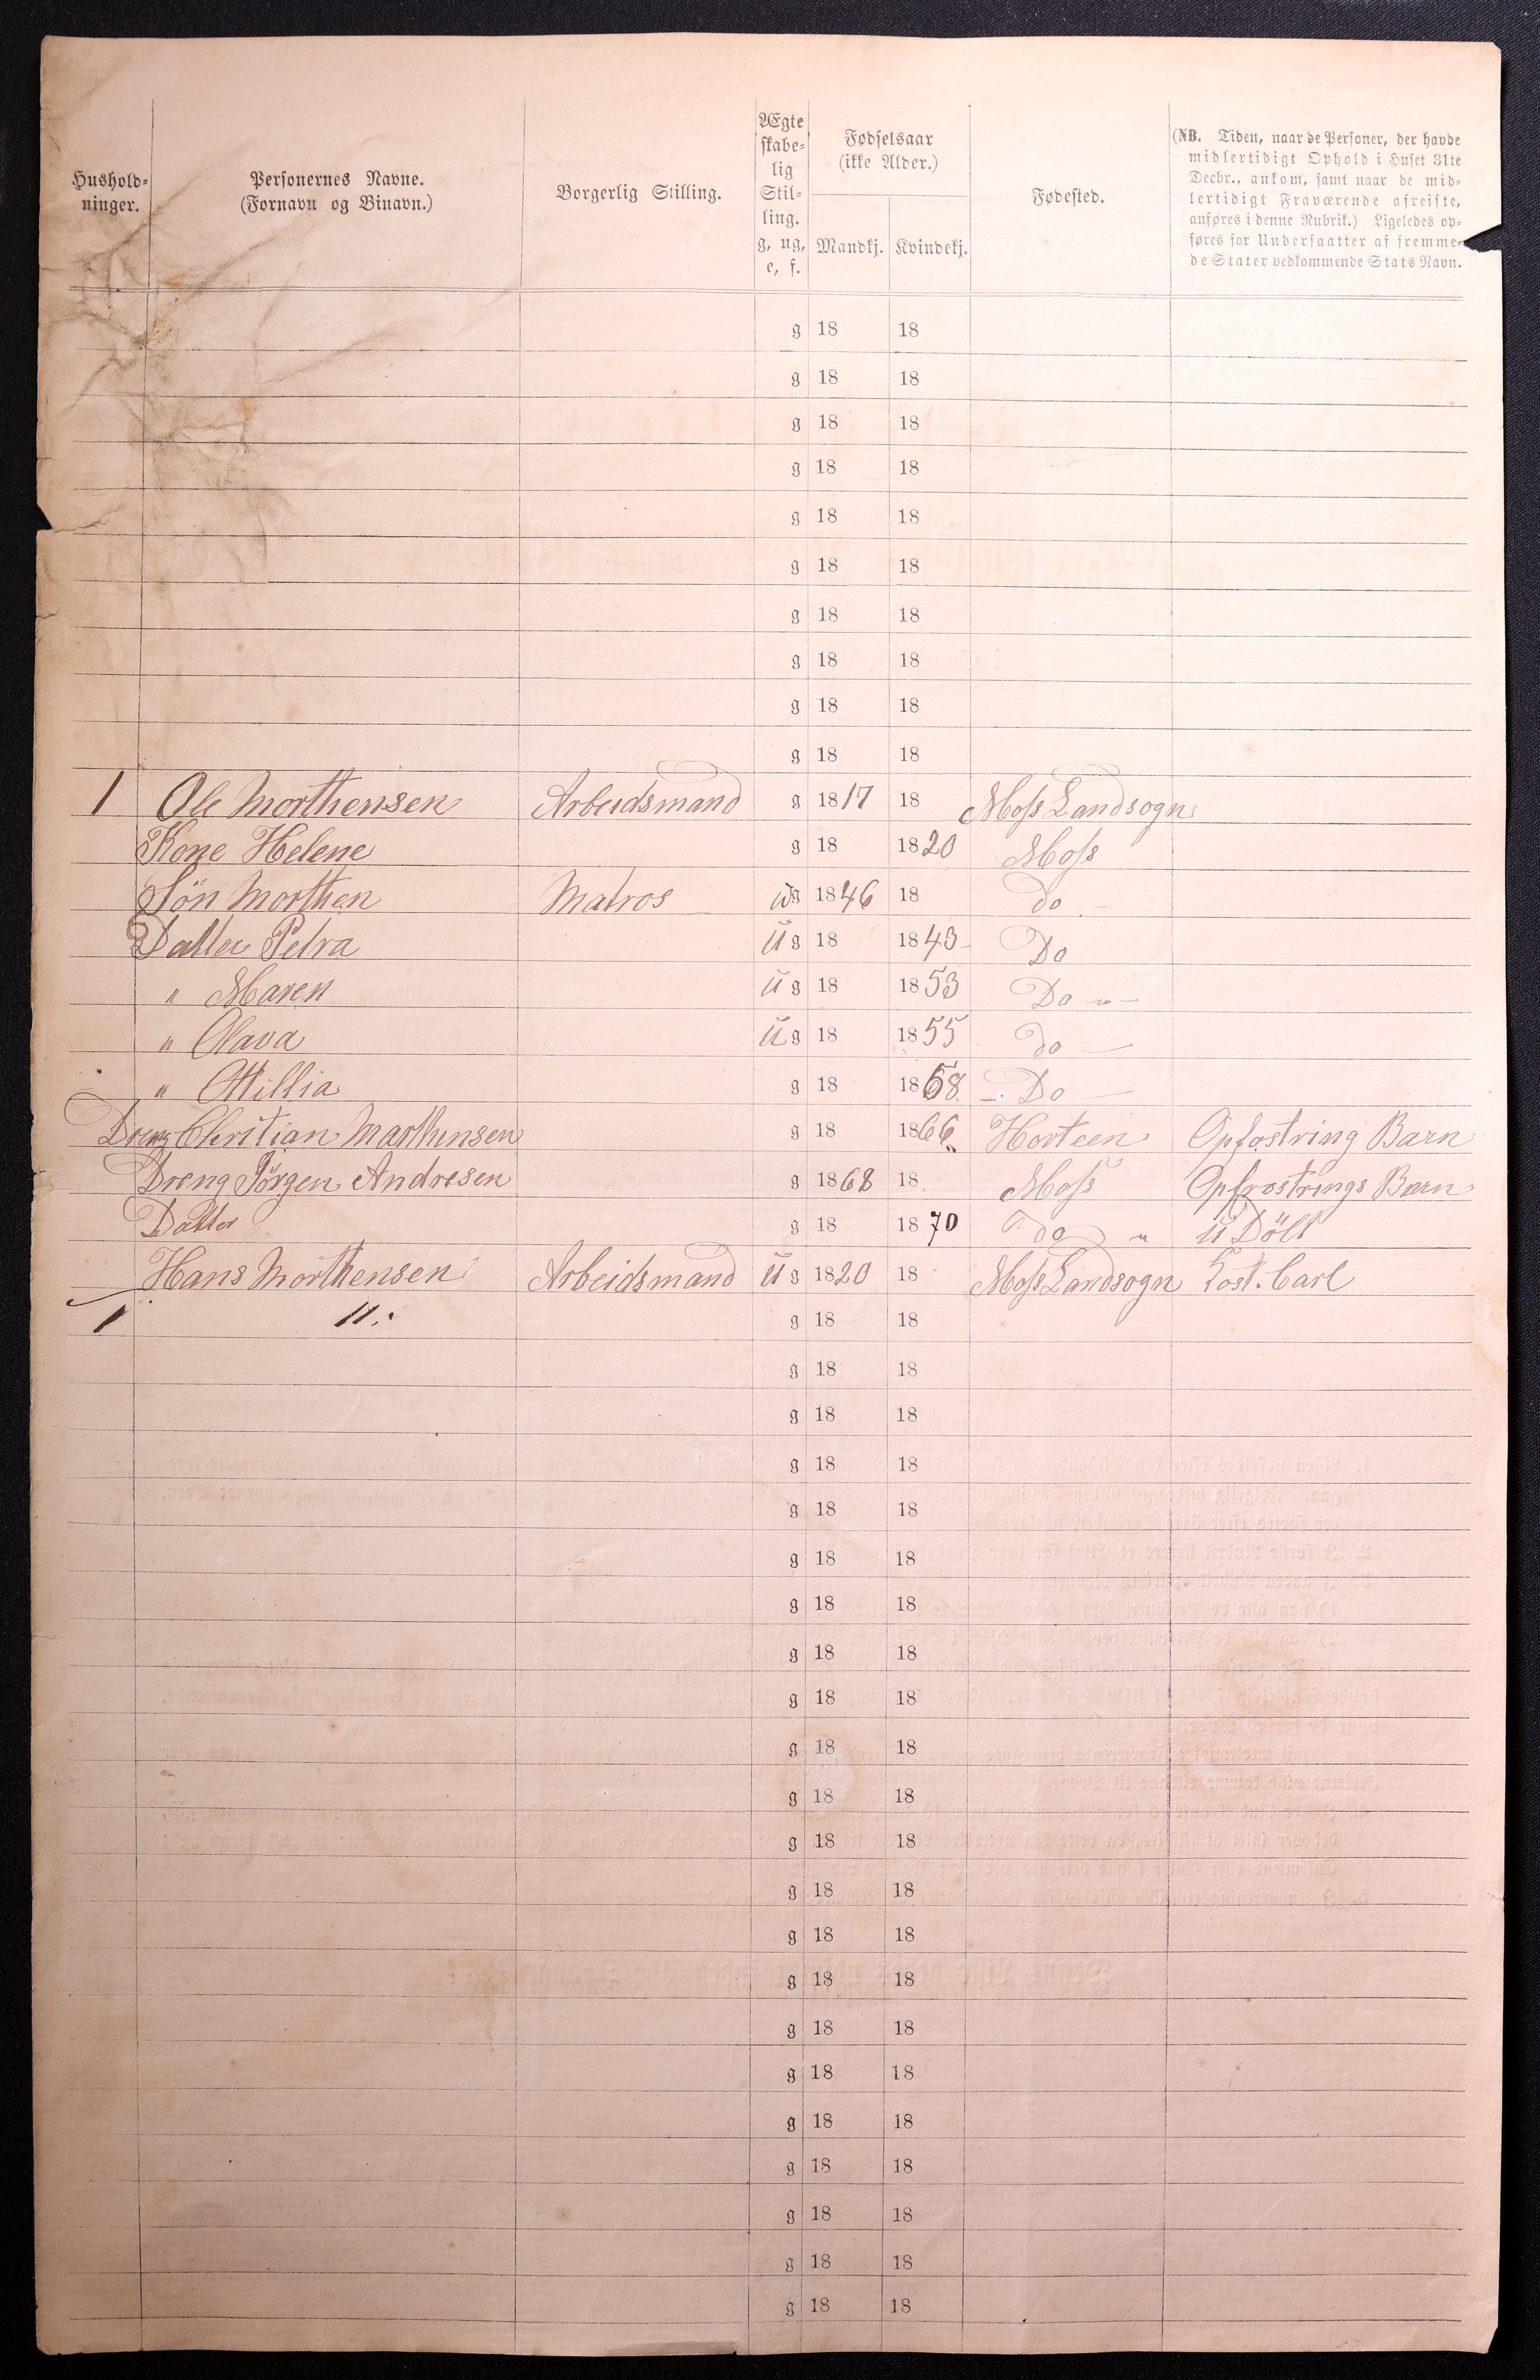 Hushold-
ninger.
Personernes Navne.
(Fornavn og Binavn.)
Borgerlig Stilling.
Ægte
skabe-
lig
Stil-
ling.
g, ug,
e, f.
Fødselsaar
(ikke Alder.)
Mandkj. Kvindekj.
Fødested.
(NB. Tiden, naar de Personer, der havde
midlertidigt Ophold i Huset 31te
Decbr., ankom, samt naar de mid-
lertidigt Fraværende afreiste,
anføres i denne Rubrik.) Ligeledes op-
føres for Undersaatter af fremme-
de Stater vedkommende Stats Navn.
g 18 18
g 18 18
g 18 18
g 18 18
g 18 18
g 18 18
g 18 18
g 18 18
g 18 18
g 18 18
1 Ole Morthensen Arbeidsmand g 1817 18 Moss Landsogn
Kone Helene g 18 1820 Moss
Sön Morthen Matros ug 1846 18 do -
Datter Petra ug 18 1843 - Do
" Maren ug 18 1853 Do " -
" Olava ug 18 1855 do -
" Ottillia g 18 1858 - Do -
Dreng Christian Marthinsen g 18 1866 Horteen Opfostring Barn
Dreng Jörgen Andresen g 1868 18 Moss Opfrostrings Barn
Datter g 18 1870 do " u Dölt
Hans Morthensen Arbeidsmand ug 1820 18 Moss Landsogn Lost. Carl
1 11. g 18 18
g 18 18
g 18 18
g 18 18
g 18 18
g 18 18
g 18 18
g 18 18
g 18 18
g 18 18
g 18 18
g 18 18
g 18 18
g 18 18
g 18 18
g 18 18
g 18 18
g 18 18
g 18 18
g 18 18
g 18 18
g 18 18